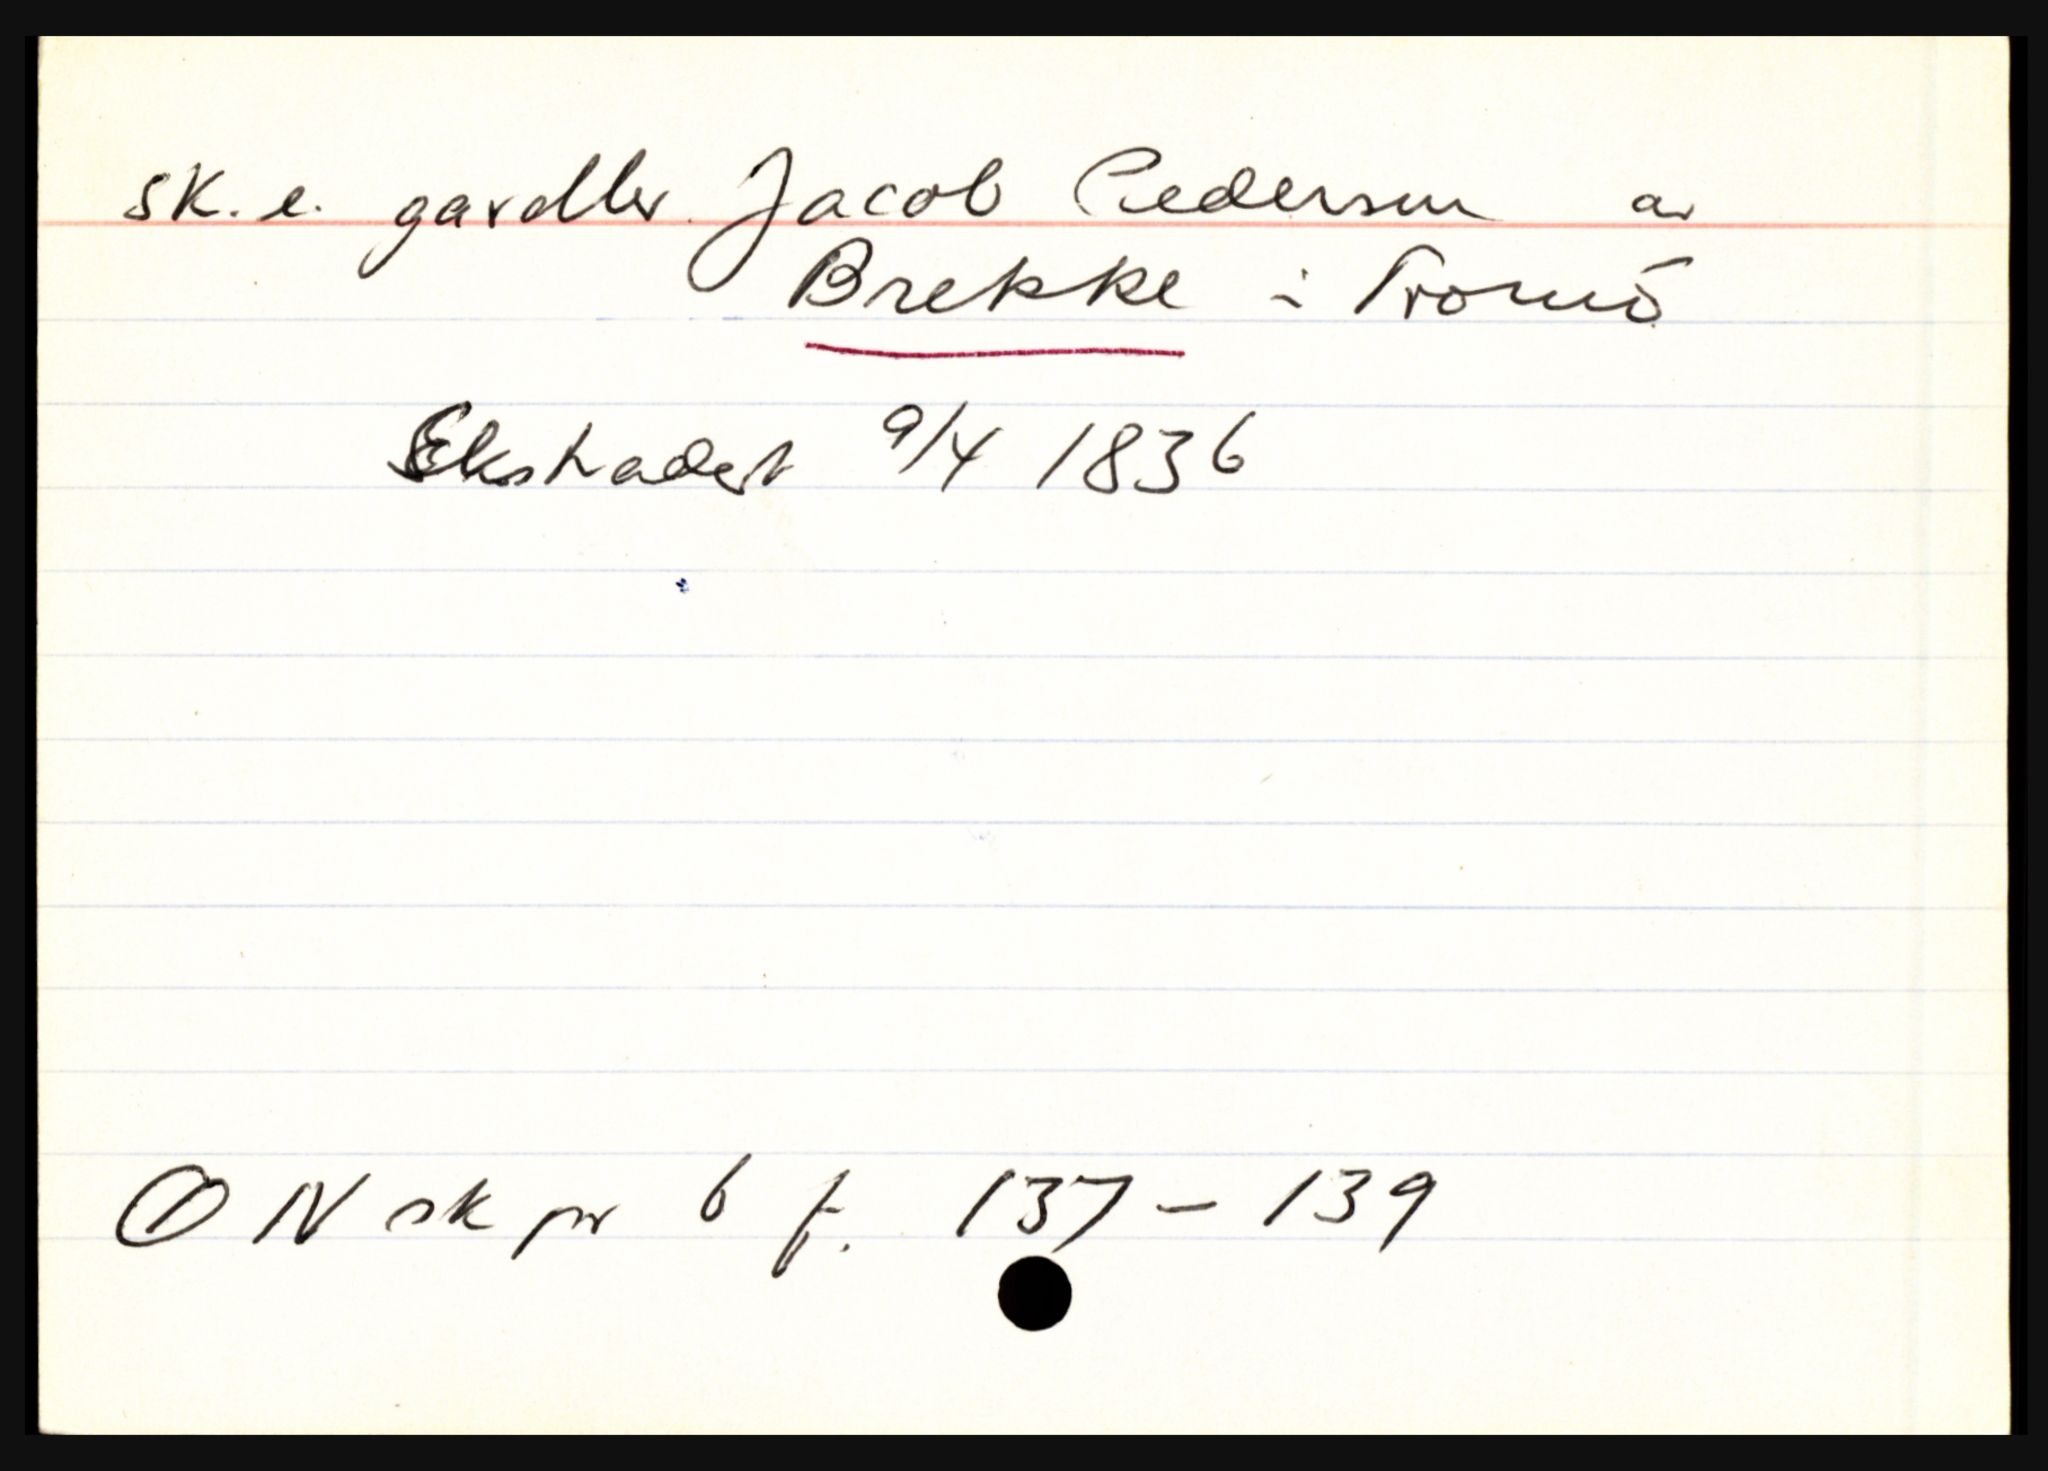 sk. e. gardbr. Jacob Pedersen av
Brekke i Tromö
Ekstradert 9/4 1836
Ⓘ N sk pr 6 f. 137 - 139